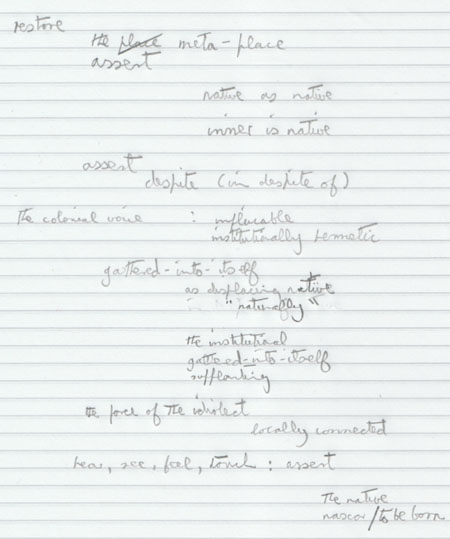 restore
the place meta-place
assert
native as native
inner is native
assert
despite (in despite of)
the colonial voice : implacable
institutionally hermetic
gathered-into-itself
as displacing native
"naturally"
the institutional
gathered-into-itself
supplanting
the force of the idiolect
locally connected
hear, see, feel, touch : assert
the native
nascor/to be born